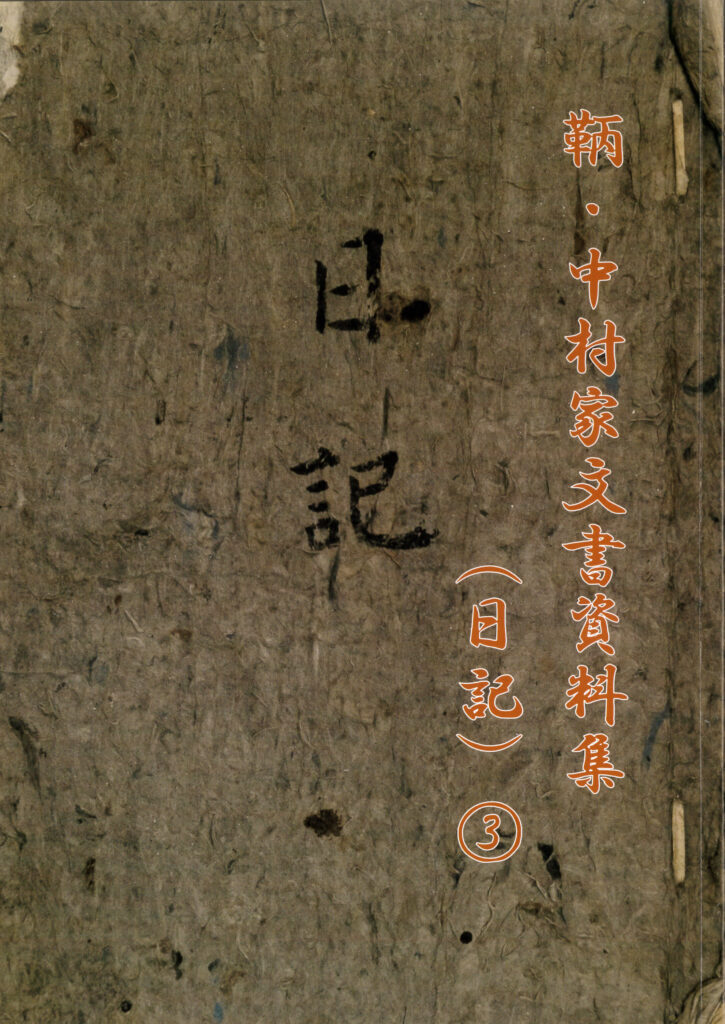 鞆・中村家文書資料集
（日記）③
日記